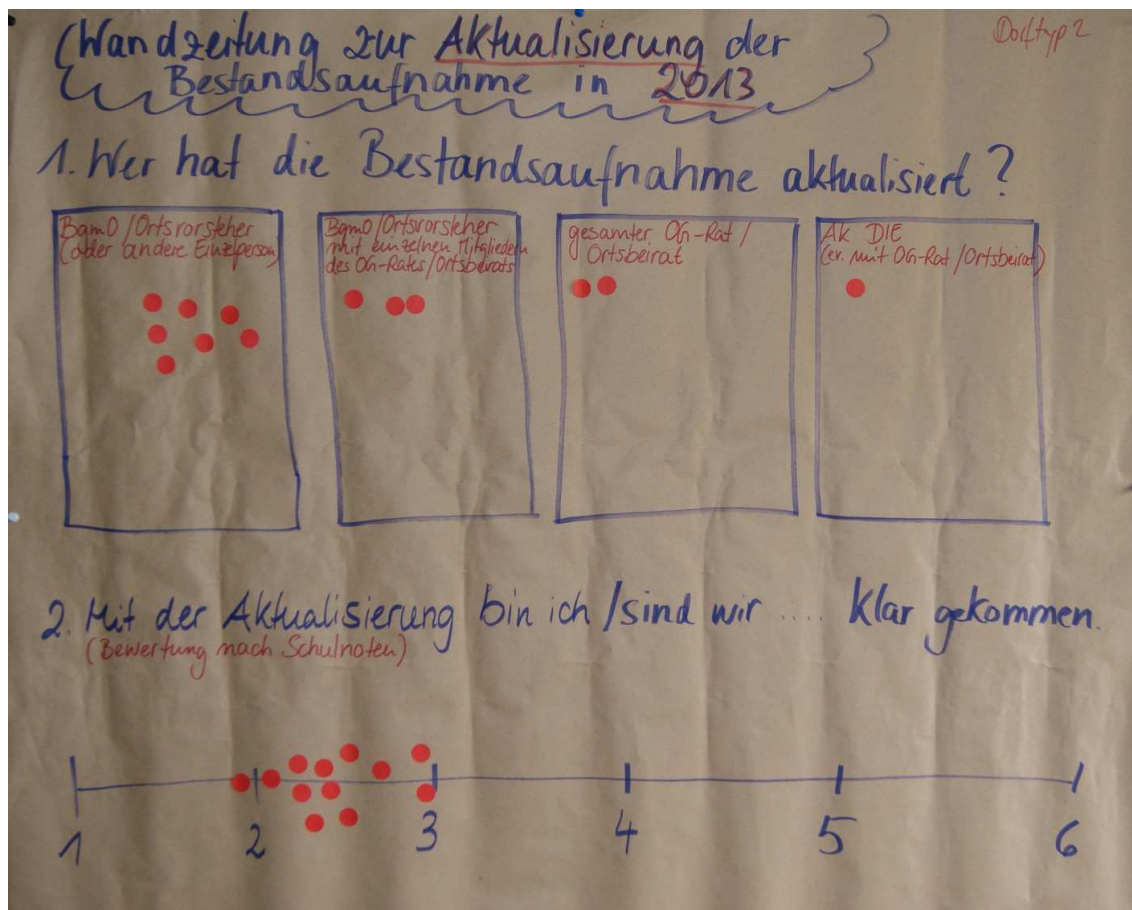 Wandzeitung zur Aktualisierung der
Bestandsaufnahme in 2013
Dorftyp 2
1. Wer hat die Bestandsaufnahme aktualisiert?
BgmO/Ortsvorsteher
(oder andere Einzelperson)
BgmO/Ortsvorsteher
mit einzelnen Mitgliedern
des OG-Rates/Ortsbeirats
gesamter OG-Rat /
Ortsbeirat
AK DIE
(ev. mit OG-Rat/Ortsbeirat)
2. Mit der Aktualisierung bin ich/sind wir .... klar gekommen.
(Bewertung nach Schulnoten)
1 2 3 4 5 6